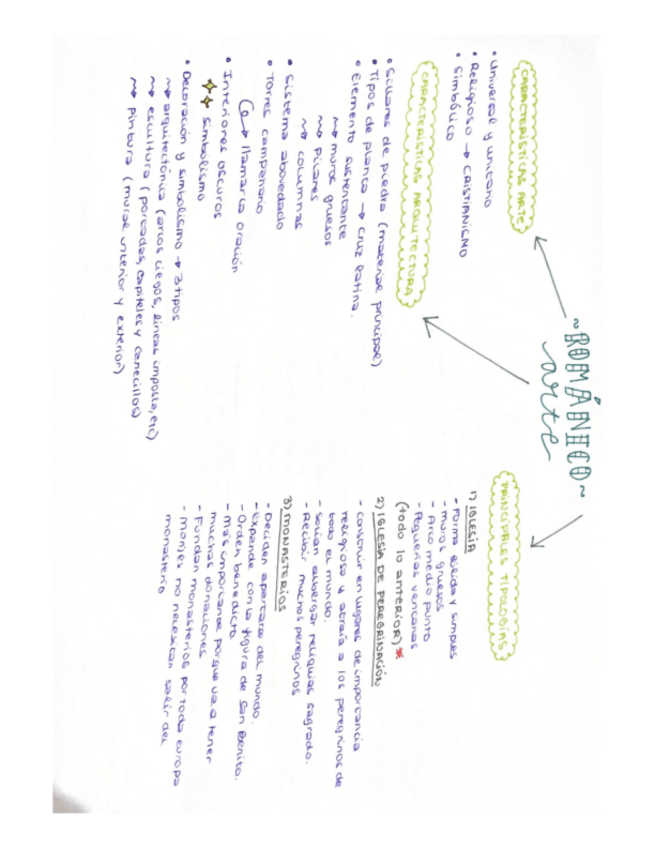 ~ROMÁNICO~
arte
CARACTERÍSTICAS ARTE
• Universal y unitario
• Religioso → CRISTIANISMO
• Simbólico
CARACTERÍSTICAS ARQUITECTURA
• Sillares de piedra (material principal)
• Tipos de planta → cruz latina.
• Elemento sustentante
↝ muros gruesos
↝ pilares
↝ columnas
• Sistema abovedado
• Torres campanario
↳ llamar la oración
• Interiores oscuros
simbolismo
• Decoración y simbolismo → 3 tipos
↝ arquitectónica (arcos ciegos, líneas imposta, etc)
↝ escultura (portadas, capiteles y canecillos)
↝ pintura (mural interior y exterior)
PRINCIPALES TIPOLOGÍAS
1) IGLESIA
- Forma sólida y simples
- muros gruesos
- Arco medio punto
- Pequeñas ventanas
(todo lo anterior) *
2) IGLESIA DE PEREGRINACIÓN
- construir en lugares de importancia
religiosa y atraía a los peregrinos de
todo el mundo.
- solían albergar reliquias sagrado.
- Recibir muchos peregrinos
3) MONASTERIOS
- Deciden apartarse del mundo.
- expande con la figura de San Benito.
- Orden benedicto
- Más importante porque va a tener
muchas donaciones
- Fundan monasterios por toda europa
- Monjes no necesitan salir del
monasterio